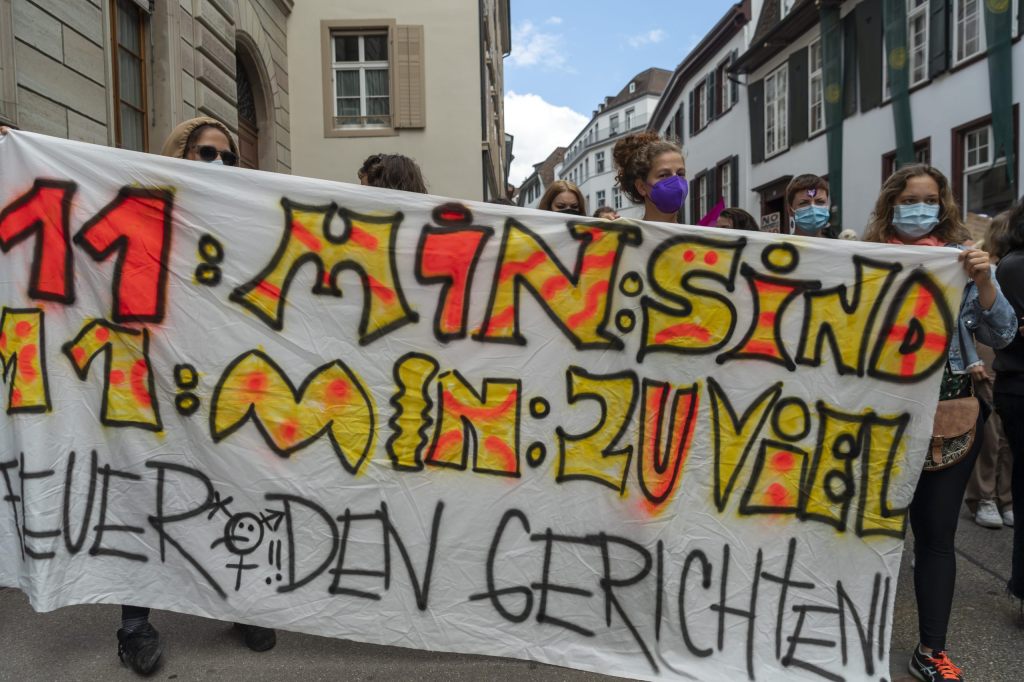 11:MIN:SIND
11:MIN:ZUViEL
FEUER DEN GERICHTEN!!